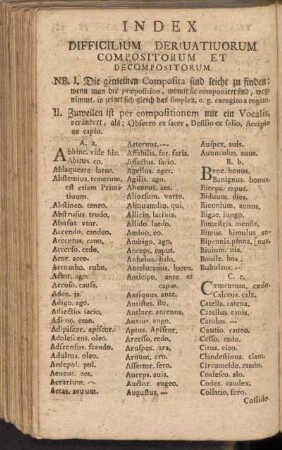 INDEX
DIFFICILIUM DERIVATIUORUM
COMPOSITORUM ET
DECOMPOSITORUM.
NB. I. Die gemeinen Composita sind leicht zu finden:
wenn man die præposition, womit sie componiret sind,
nimmt, so zeiget sich gleich das simplex, e. g. excogito a cogito.
II. Zuweilen ist per compositionem nur ein Vocalis
verändert, als: Obsecro ex sacer, Desilio ex salio, Accipio
ex capio.
A. a.
Abhinc. vide hic.
Abitus. eo.
Ablaqueare. latus.
Abstemius. temetum,
est etiam Primi
tivum.
Abstineo. teneo.
Abstrusus. trudo.
Abusus. utor.
Accendo. candeo.
Accentus. cano.
Accerso. cedo.
Acer. aceo.
Accumbo. cubo.
Actor. ago.
Accuso. causa.
Adeo. is.
Adigo. ago.
Adiectio. jacio.
Adimo. emo.
Adipiscor. apiscor.
Adolescens. oleo.
Adscensus. scando.
Adultus. oleo.
Aedepol. pol.
Aeneus. aes.
Aerarium. —
Aetas. aevum.
Aeternus. —
Affabilis. for. faris.
Affectus. facio.
Agellus. ager.
Agilis. ago.
Aheneus. aes.
Aliorsum. verto.
Aliquamdiu. qui.
Allicio. lacio.
Allido. laedo.
Ambio. eo.
Ambigo. ago.
Anceps. caput.
Anhelus. halo.
Antelucanus. luceo.
Anticipo. ante et
capio.
Antiquus. ante.
Antistes. sto.
Anxius. ango.
Aptus. Apiscor.
Arcesso. cedo.
Aruspex. ara.
Assertor. sero.
Auceps. avis.
Auctor. augeo.
Augustus. —
Auspex. avis.
Avunculus. avus.
B. b.
Bene. bonus.
Benignus. bonus.
Biceps. caput.
Biduum. dies.
Biennium. annus.
Bigae. jungo.
Bimestris. mensis.
Bipennis. pinna,
Bivium. via.
Bovile. bos.
Bubulus. —
C. c.
Calceus. calx.
Catella. catena.
Catellus. canis.
Catulus. —
Cautio. caveo.
Cesso. cedo.
Citus. cieo.
Clandestinus. clam.
Coalesco. alo.
Codex. caudex.
Collatio. fero.
Collido.